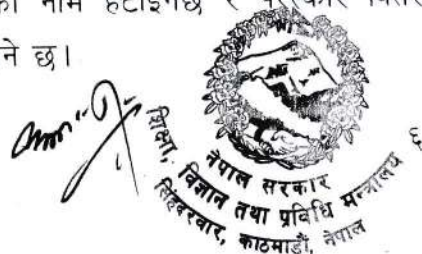 नाम हटाइनेछ र
ने छ।
६
नेपाल सरकार
शिक्षा, विज्ञान तथा प्रविधि मन्त्रालय
सिंहदरवार, काठमाडौं, नेपाल